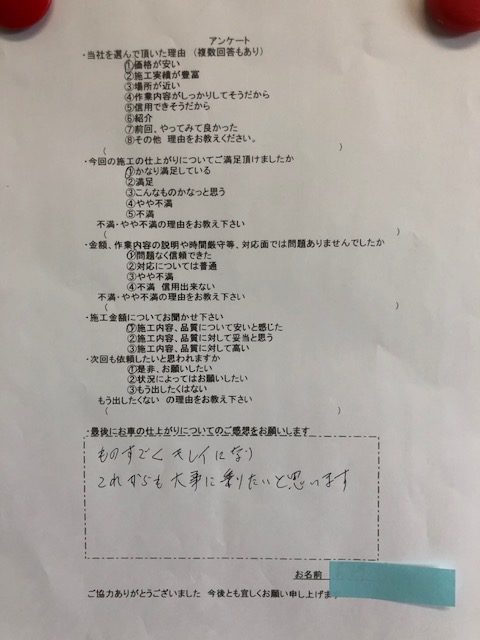 アンケート
・当社を選んで頂いた理由　（複数回答もあり）
①価格が安い
②施工実績が豊富
③場所が近い
④作業内容がしっかりしてそうだから
⑤信用できそうだから
⑥紹介
⑦前回、やってみて良かった
⑧その他　理由をお教えください。
（　　）
・今回の施工の仕上がりについてご満足頂けましたか
①かなり満足している
②満足
③こんなものかなっと思う
④やや不満
⑤不満
不満・やや不満の理由をお教え下さい
（　　）
・金額、作業内容の説明や時間厳守等、対応面では問題ありませんでしたか
①問題なく信頼できた
②対応については普通
③やや不満
④不満　信用出来ない
不満・やや不満の理由をお教え下さい
（　　）
・施工金額についてお聞かせ下さい
①施工内容、品質について安いと感じた
②施工内容、品質に対して妥当と思う
③施工内容、品質に対して高い
・次回も依頼したいと思われますか
①是非、お願いしたい
②状況によってはお願いしたい
③もう出したくはない
もう出したくない　の理由をお教え下さい
（　　）
・最後にお車の仕上がりについてのご感想をお願いします
ものすごく キレイになり
これからも 大事に乗りたいと思います
お名前
ご協力ありがとうございました　今後とも宜しくお願い申し上げます